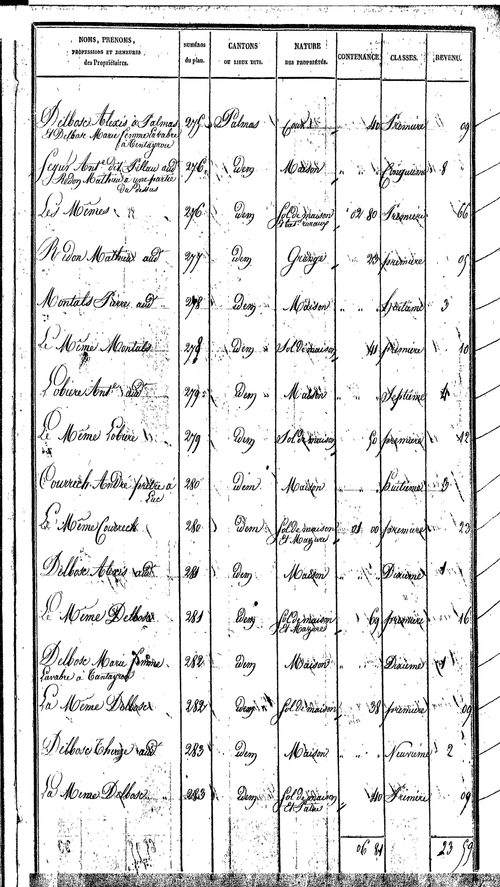 NOMS, PRÉNOMS, PROFESSIONS ET DEMEURES des Propriétaires. NUMÉROS du plan. CANTONS OU LIEUX DITS. NATURE DES PROPRIÉTÉS. CONTENANCE. CLASSES. REVENU.
Delbosc Alexis à Palmas 275 Palmas Cour 40 Première 09
Et Delbosc Marie femme Lavabre
à Tantayrou
Ségur Ant.e dit Pillau aud 276 idem Maison Cinquieme 8
Redon Mathieu a une partie
Les Mêmes 276 idem Sol de maison 02 80 Première 66
Redon Mathieu aud 277 idem Grange 23 première 05
Montals Pierre aud 278 idem Maison huitieme 3
Le Même Montals 278 idem Sol de maison 41 première 10
Lobiere Ant.e aud 279 idem Maison Septieme 4
Le Même Lobiere 279 idem Sol de maison 50 première 12
Courrech André prêtre à 280 idem Maison huitieme 3
Luc
Le Même Courrech 280 idem Sol de maison 01 00 première 23
Et Mazure
Delbosc Alexis aud 281 idem Maison Dixieme 1
Le Même Delbosc 281 idem Sol de maison 69 première 16
Et Mazure
Delbosc Marie femme 282 idem Maison Dixieme 1
Lavabre à Tantayrou
La Même Delbosc 282 idem Sol de maison 38 première 09
Delbosc Thereze aud 283 idem Maison Neuvieme 2
La Même Delbosc 283 idem Sol de maison 40 Première 09
Et Patus
06 81 23 59